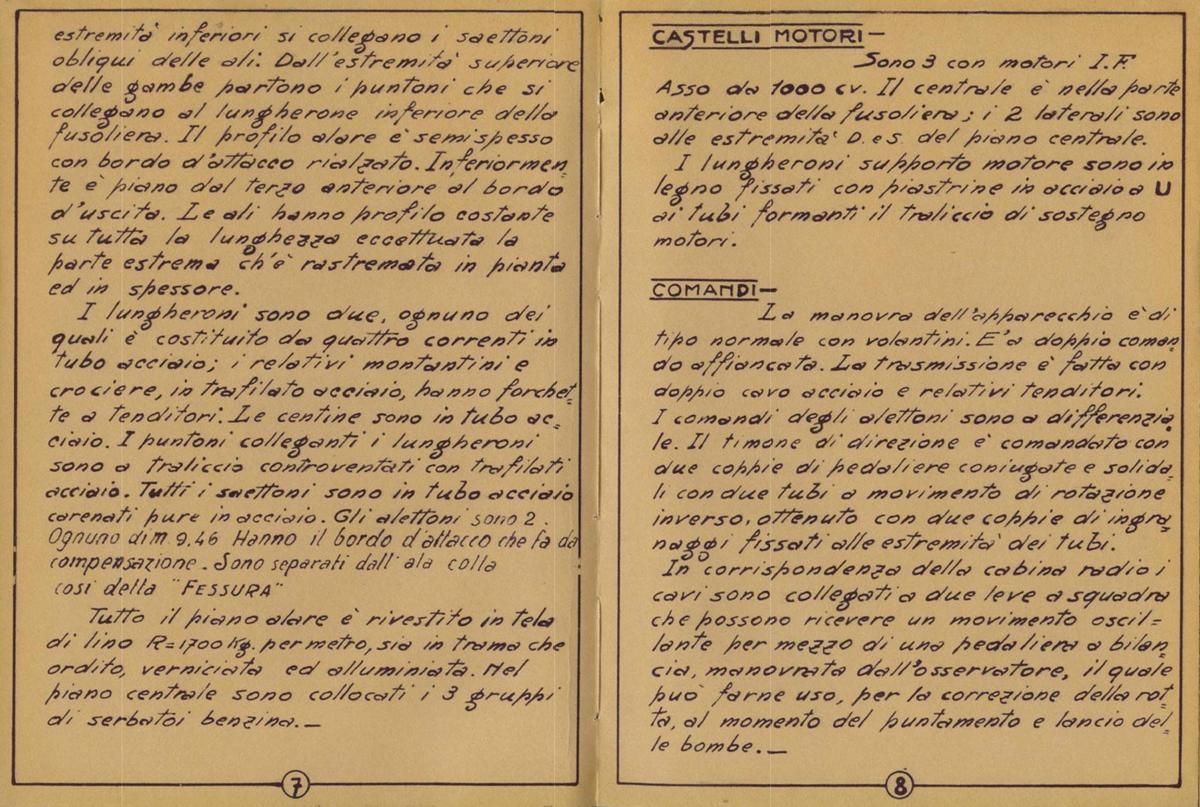 estremità inferiori si collegano i saettoni
obliqui delle ali. Dall'estremità superiore
delle gambe partono i puntoni che si
collegano al lungherone inferiore della
fusoliera. Il profilo alare è semispesso
con bordo d'attacco rialzato. Inferiormen=
te è piano dal terzo anteriore al bordo
d'uscita. Le ali hanno profilo costante
su tutta la lunghezza eccettuata la
parte estrema ch'è rastremata in pianta
ed in spessore.
I lungheroni sono due, ognuno dei
quali è costituito da quattro correnti in
tubo acciaio; i relativi montantini e
crociere, in trafilato acciaio, hanno forchet=
te a tenditori. Le centine sono in tubo ac=
ciaio. I puntoni colleganti i lungheroni
sono a traliccio controventati con trafilati
acciaio. Tutti i saettoni sono in tubo acciaio
carenati pure in acciaio. Gli alettoni sono 2.
Ognuno di m. 9.46 Hanno il bordo d'attacco che fa da
compensazione. Sono separati dall'ala colla
cosi della "FESSURA"
Tutto il piano alare è rivestito in tela
di lino R=1700 Kg. per metro, sia in trama che
ordito, verniciata ed alluminiata. Nel
piano centrale sono collocati i 3 gruppi
di serbatoi benzina._
7
CASTELLI MOTORI-
Sono 3 con motori I.F.
Asso da 1000 cv. Il centrale è nella parte
anteriore della fusoliera; i 2 laterali sono
alle estremità D. e S. del piano centrale.
I lungheroni supporto motore sono in
legno fissati con piastrine in acciaio a U
ai tubi formanti il traliccio di sostegno
motori.
COMANDI-
La manovra dell'apparecchio è di
tipo normale con volantini. E' a doppio coman=
do affiancata. La trasmissione è fatta con
doppio cavo acciaio e relativi tenditori.
I comandi degli alettoni sono a differenzia=
le. Il timone di direzione è comandato con
due coppie di pedaliere coniugate e solida=
li con due tubi a movimento di rotazione
inverso, ottenuto con due coppie di ingra=
naggi fissati alle estremità dei tubi.
In corrispondenza della cabina radio i
cavi sono collegati a due leve a squadra
che possono ricevere un movimento oscil=
lante per mezzo di una pedaliera a bilan=
cia, manovrata dall'osservatore, il quale
può farne uso, per la correzione della rot=
ta, al momento del puntamento e lancio del=
le bombe._
8